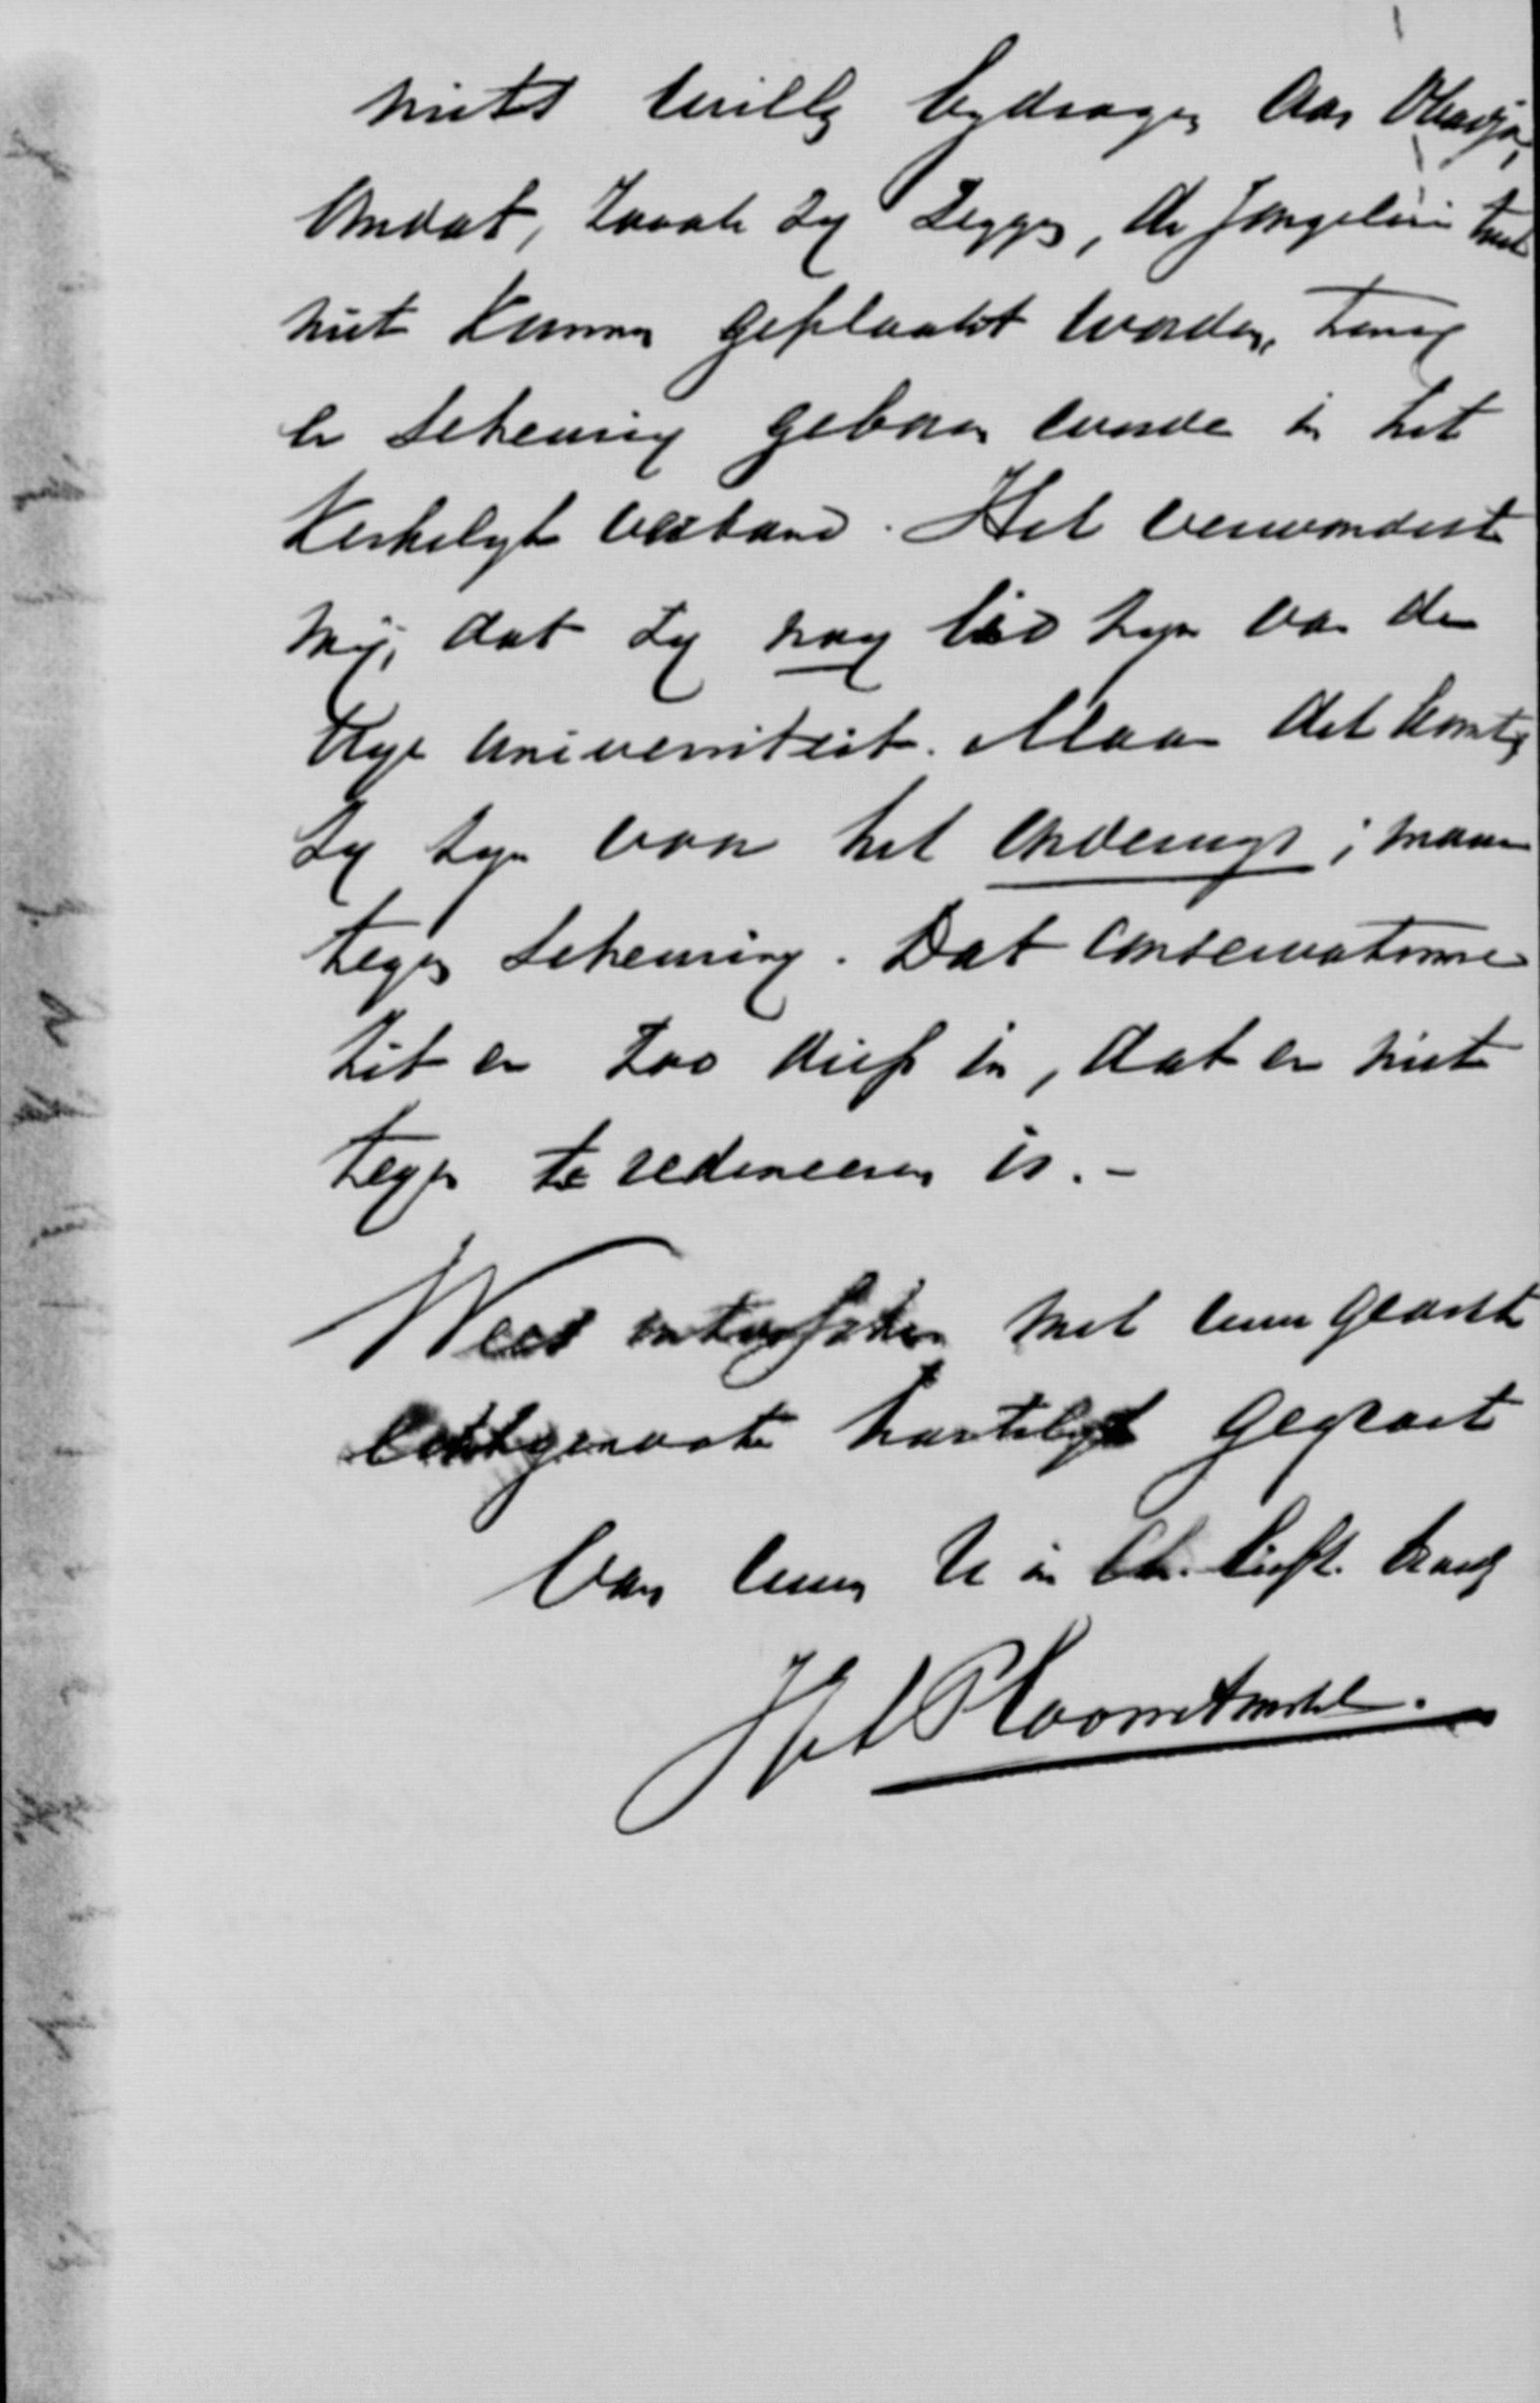 niets willen bydragen aan Obadja,
omdat, zooals zy zeggen, de jongelui toch
niet kunnen geplaatst worden, tenzy
er scheuring geboren worde in het
Kerkelyk verband. Het verwondert
my, dat zy nog lid zyn van de
Vrye Universiteit. Maar dat komt,
zy zyn voor het onderwys; maar
tegen scheuring. Dat conservatisme
zit er zoo diep in, dat er niet
tegen te redeneeren is. -
Wees intusschen met uwe geachte
echtgenoote hartelyk gegroet
van uwen U in Chr. liefh. broeder